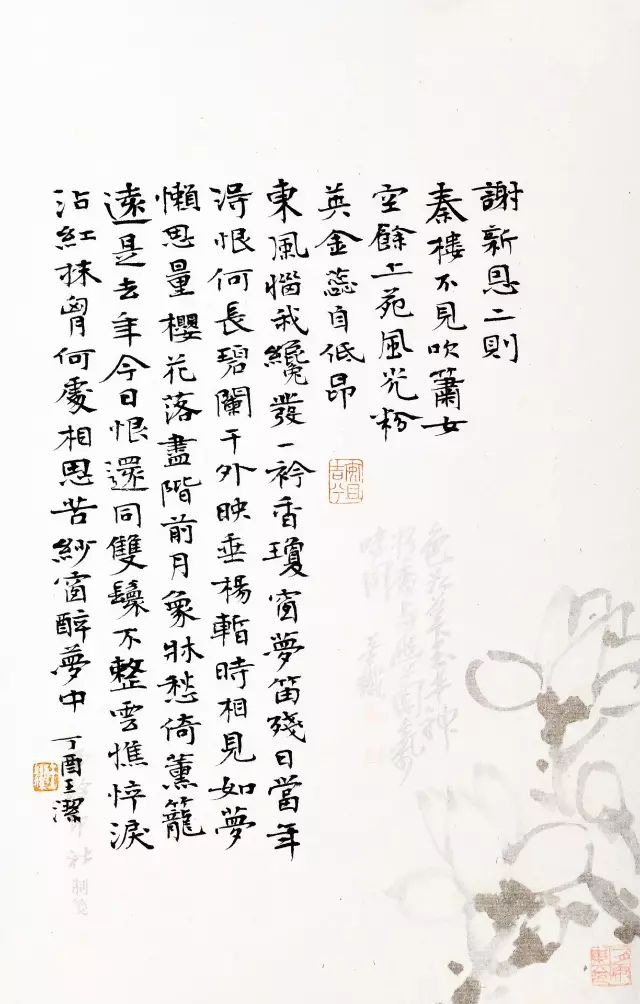 謝新恩二則
秦樓不見吹簫女
空餘上苑風光粉
英金蕊自低昂
東風惱我纔發一衿香瓊窗夢笛殘日當年
得恨何長碧闌干外映垂楊暫時相見如夢
懶思量櫻花落盡階前月象牀愁倚薰籠
遠是去年今日恨還同雙鬟不整雲憔悴淚
沾紅抹胷何處相思苦紗窗醉夢中 丁酉王潔
社制箋